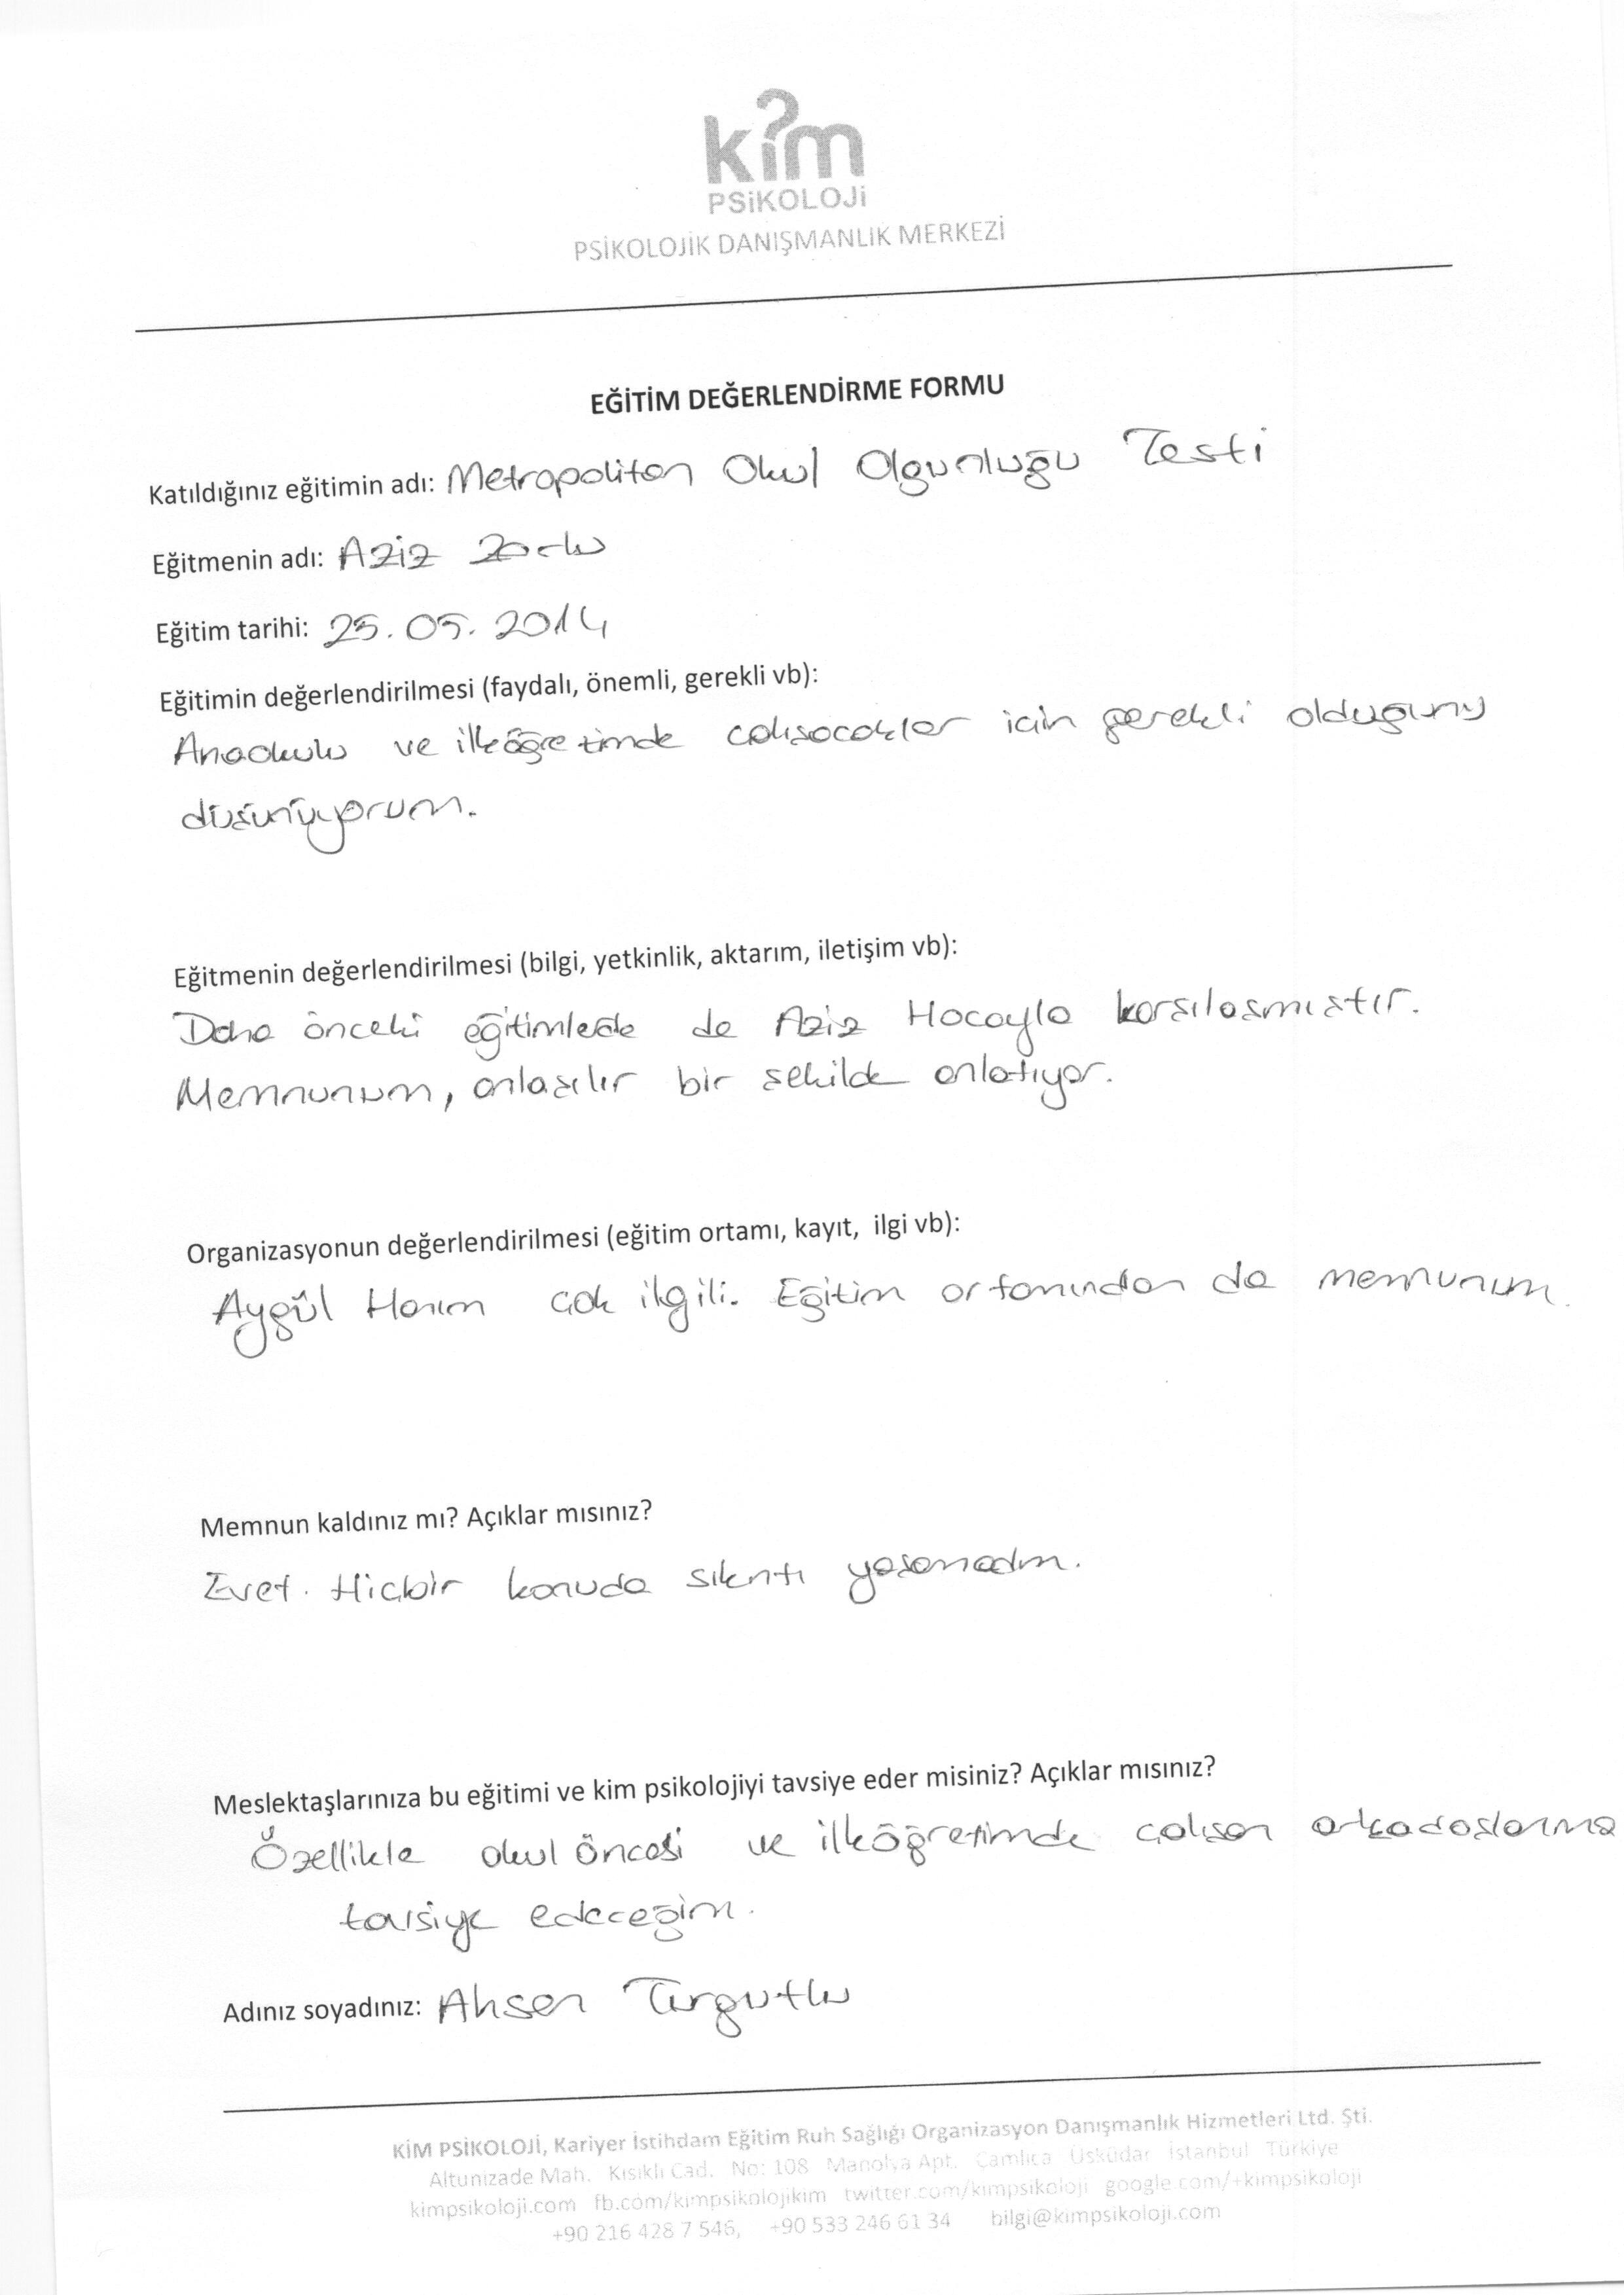 kim
PSiKOLOJi
PSİKOLOJİK DANIŞMANLIK MERKEZİ
EĞİTİM DEĞERLENDİRME FORMU
Katıldığınız eğitimin adı: Metropoliten Okul Olgunluğu Testi
Eğitmenin adı: Aziz Zorlu
Eğitim tarihi: 25.05.2014
Eğitimin değerlendirilmesi (faydalı, önemli, gerekli vb):
Anaokulu ve ilköğretimde calısacaklar icin gerekli olduğunu
düsünüyorum.
Eğitmenin değerlendirilmesi (bilgi, yetkinlik, aktarım, iletişim vb):
Daha önceki eğitimlede de Aziz Hocayla karsılasmıstır.
Memnunum, anlasılır bir sekilde anlatıyor.
Organizasyonun değerlendirilmesi (eğitim ortamı, kayıt, ilgi vb):
Aygül Hanım çok ilgili. Eğitim ortamından da memnunum.
Memnun kaldınız mı? Açıklar mısınız?
Evet. Hiçbir konuda sıkıntı yasamadım.
Meslektaşlarınıza bu eğitimi ve kim psikolojiyi tavsiye eder misiniz? Açıklar mısınız?
Özellikle okul öncesi ve ilköğretimde calısan arkadaslarıma
tavsiye edeceğim.
Adınız soyadınız: Ahsen Turgutlu
KİM PSİKOLOJİ, Kariyer İstihdam Eğitim Ruh Sağlığı Organizasyon Danışmanlık Hizmetleri Ltd. Şti.
Altunizade Mah. Kısıklı Cad. No: 108 Manolya Apt. Çamlıca Üsküdar İstanbul Türkiye
kimpsikoloji.com fb.com/kimpsikolojikim twitter.com/kimpsikoloji google.com/+kimpsikoloji
+90 216 428 7 546, +90 533 246 61 34 bilgi@kimpsikoloji.com